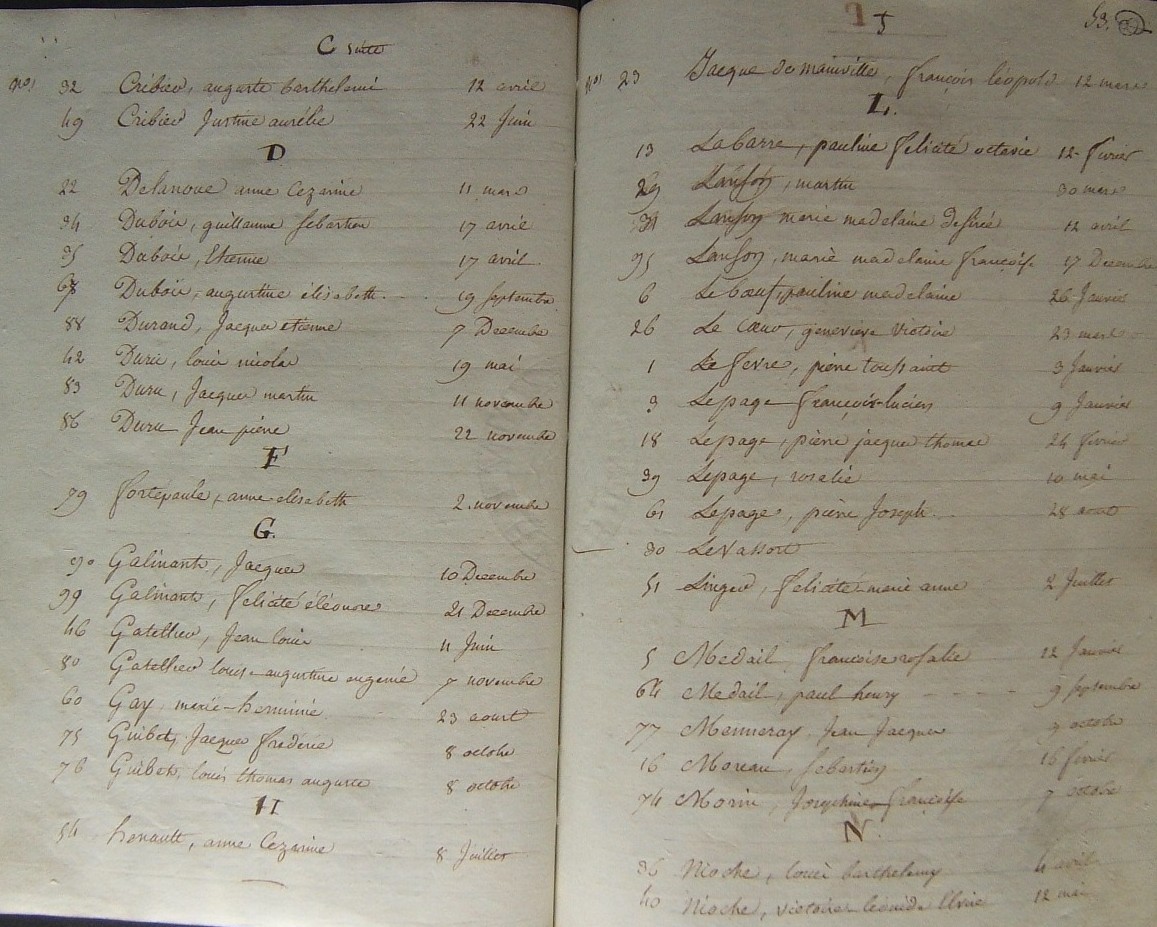 C suite
nos 32 Cribier, auguste barthelemi 12 avril
49 Cribier Justine aurélie 22 Juin
D
22 Delanoue anne Cezarine 11 mars
34 Dubois, guillaume sebastien 17 avril
35 Dubois, Etienne 17 avril
67 Dubois, augustine élisabeth 19 septembre
88 Durand, Jacques etienne 7 Decembre
42 Duru, louis nicolas 19 mai
83 Duru, Jacques martin 11 novembre
86 Duru Jean pierre 22 novembre
F
79 fortépaule, anne elisabeth 2. novembre
G.
90 Galinants, Jacques 10 Decembre
99 Galinants, félicité éléonore 21 Decembre
46 Gatellier, Jean louis 11 Juin
80 Gatellier louise augustine eugénie 7 novembre
60 Gay, marie-herminie 23 aoust
75 Guibets, Jacques frédéric 8 octobre
76 Guibets, louis thomas auguste 8 octobre
H
54 henault, anne Cezarine 8 Juillet
53.
J
nos 23 Jacque de mainville, françois léopold 12 mars
L.
13 Labarre, pauline félicité octavie 12 fevrier
29 Lanson, martin 30 mars
31 Lanson marie madelaine desirée 12 avril
95 Lanson, marie madelaine françoise 17 Decembre
6 Lebœuf, pauline madelaine 26 Janvier
26 Le Cœur, geneviève victoire 23 mars
1 Le fevre, pierre toussaint 3 Janvier
3 Lepage françois-lucien 9 Janvier
18 Lepage, pierre jacques thomas 24 fevrier
39 Lepage, rosalie 10 mai
61 Lepage, pierre Joseph 28 aoust
30 LeVassort
51 Lingeu, félicité marie anne 2 Juillet
M
5 Medail, françoise rosalie 12 Janvier
64 Medail, paul henry 9 septembre
77 Menneray, Jean Jacques 9 octobre
16 Moreau, sebastien 16 fevrier
74 Morin, Josephine françoise 7 octobre
N.
36 Nioche, louis barthelemy 4 avril
40 Nioche, victoire 12 mai